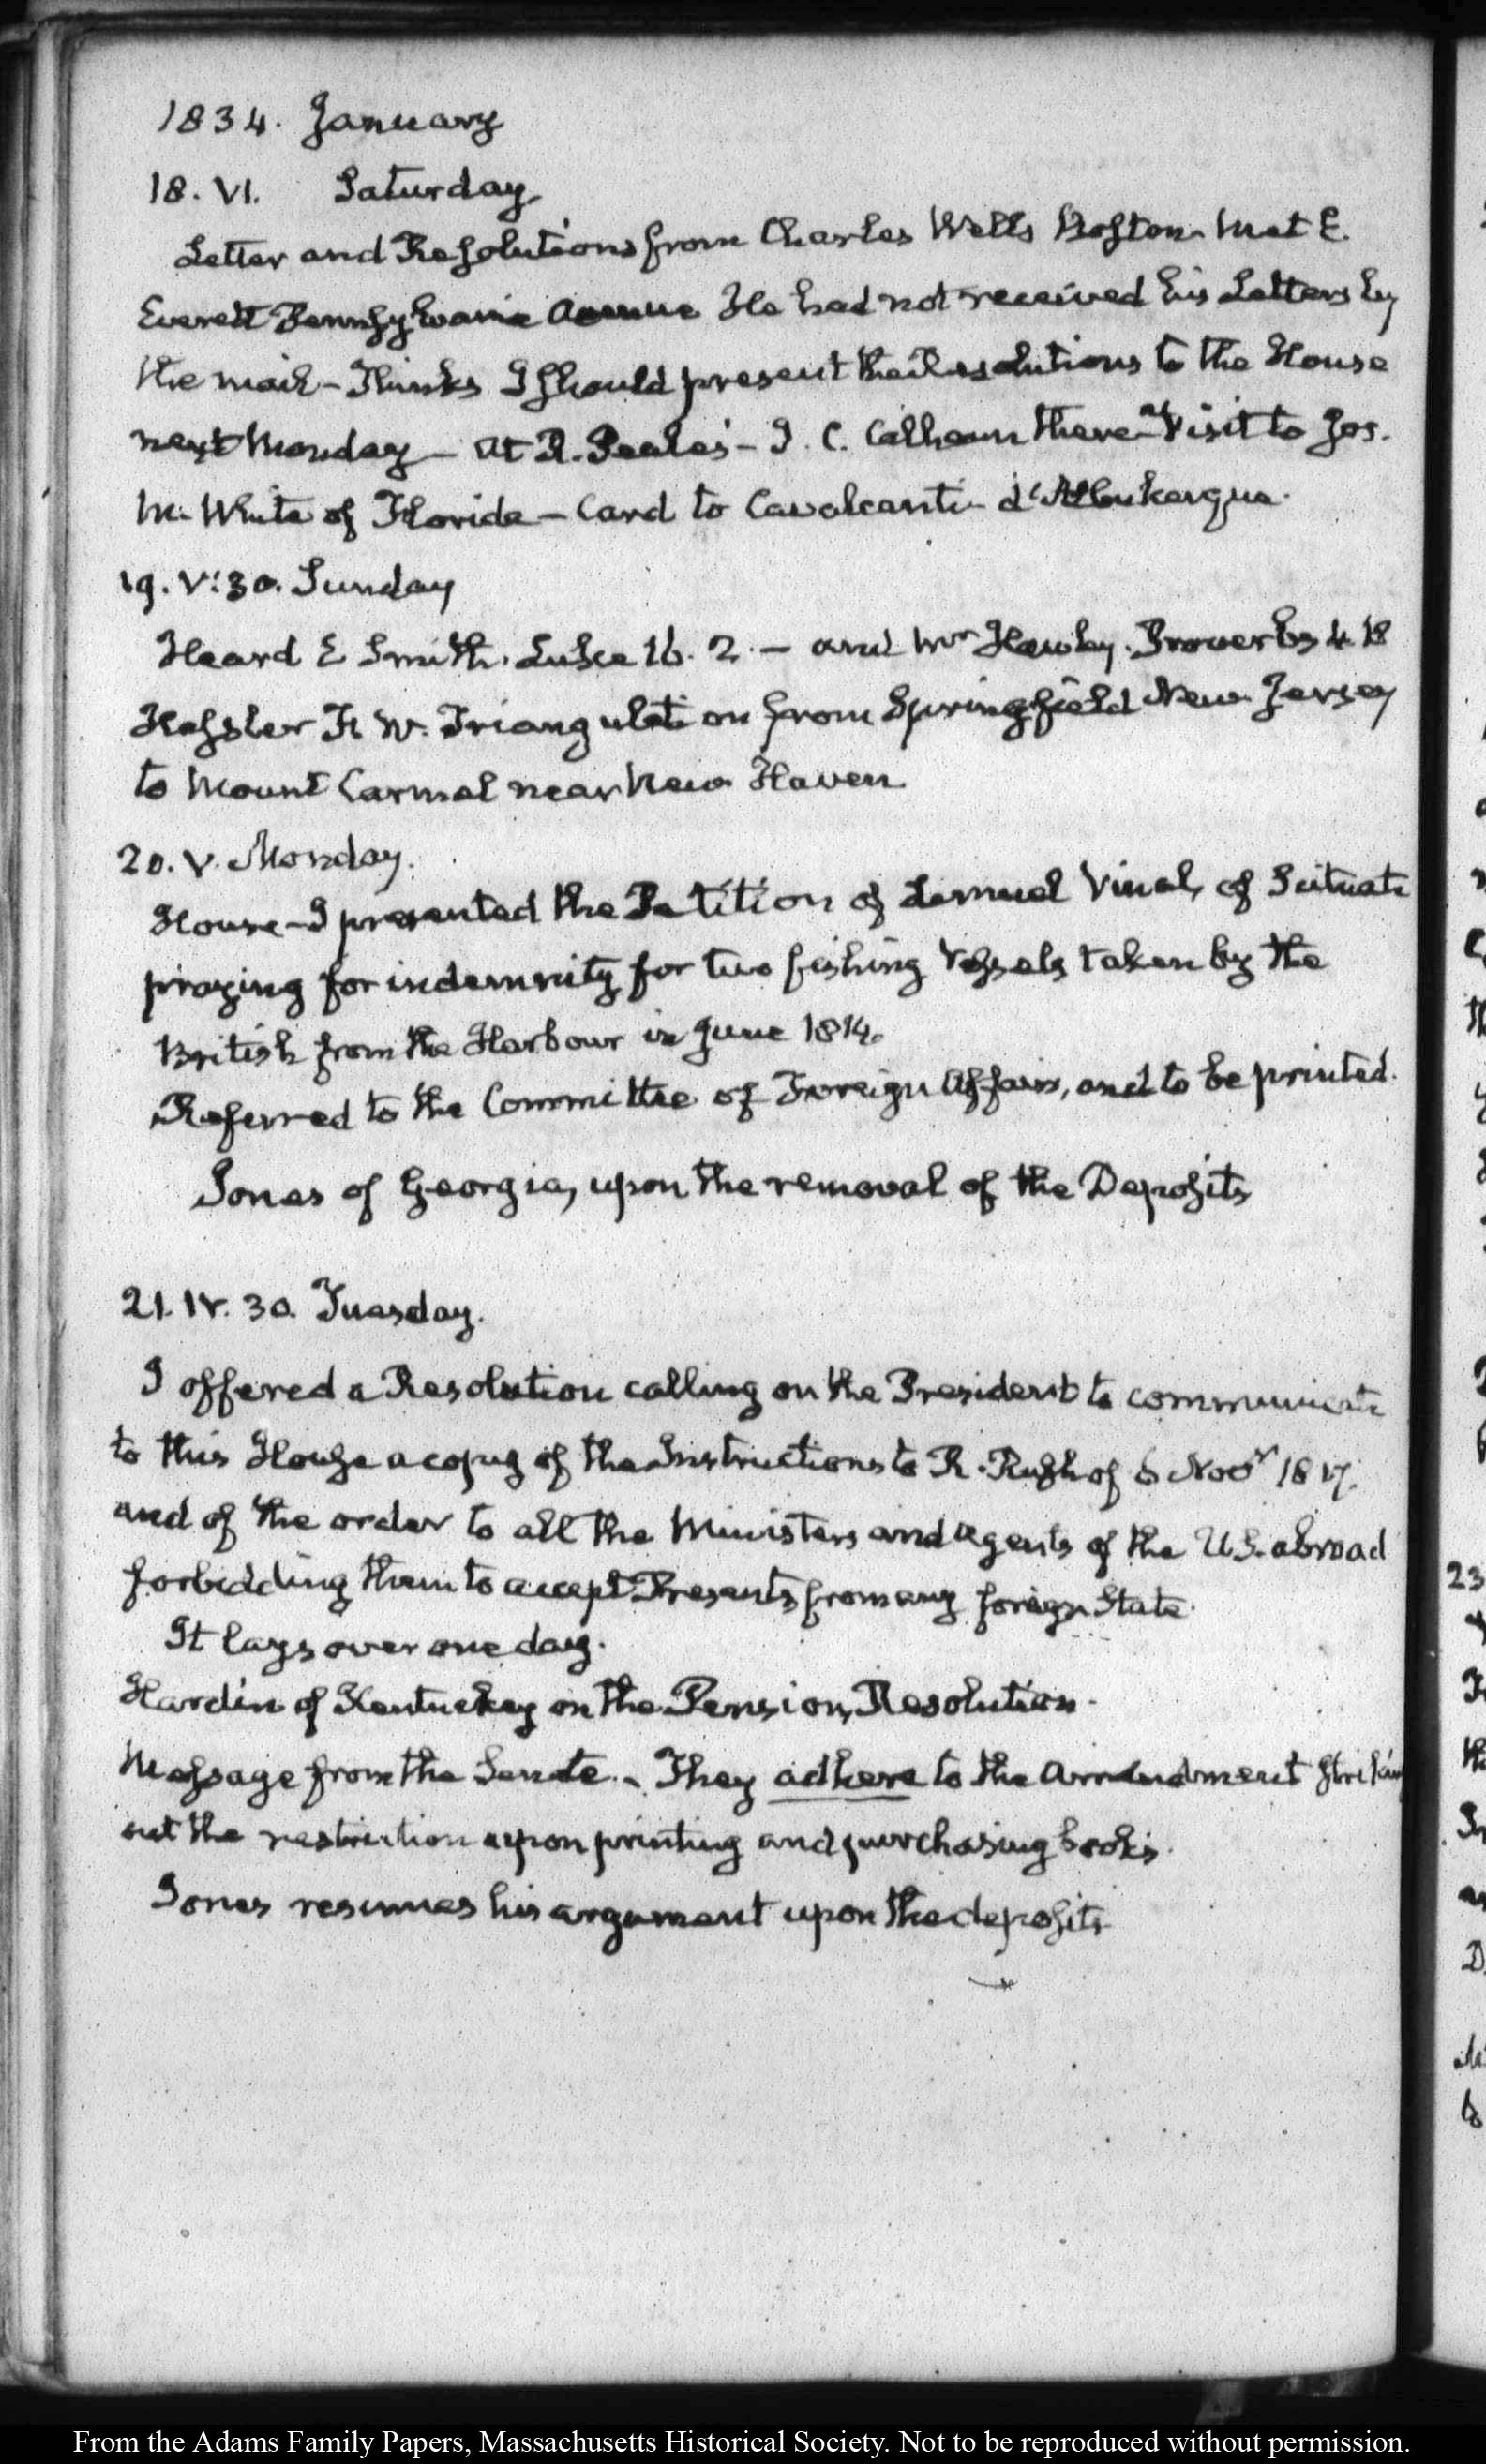 1834. January
18. VI. Saturday
Letter and Resolutions from Charles Wells Boston. Met E.
Everett Pennsylvania Avenue He had not received his Letters by
the mail - Thinks I should present the Resolutions to the House
next Monday - At R. Peale's - J. C. Calhoun there - Visit to Jos.
M. White of Florida - Card to Cavalcanti d'Albukerque.
19. V:30. Sunday
Heard E Smith. Luke 16. 2. - and Mr Hawley. Proverbs 4. 18
Hassler F. W. Triangulation from Springfield New Jersey
to Mount Carmel near New Haven
20. V. Monday.
House - I presented the Petition of Lemuel Vinal, of Scituate
praying for indemnity for two fishing Vessels taken by the
British from the Harbour in June 1814.
Referred to the Committee of Foreign Affairs, and to be printed.
Jones of Georgia, upon the removal of the Deposits
21. IV. 30. Tuesday.
I offered a Resolution calling on the President to communicate
to this House a copy of the Instructions to R. Rush of 6 Novr 1817.
and of the order to all the Ministers and Agents of the U.S. abroad
forbidding them to accept Presents from any foreign State.
It lays over one day.
Hardin of Kentucky on the Pension Resolution.
Message from the Senate. - They adhere to the Amendment striking
out the restriction upon printing and purchasing books.
Jones resumes his argument upon the deposits
23
From the Adams Family Papers, Massachusetts Historical Society. Not to be reproduced without permission.